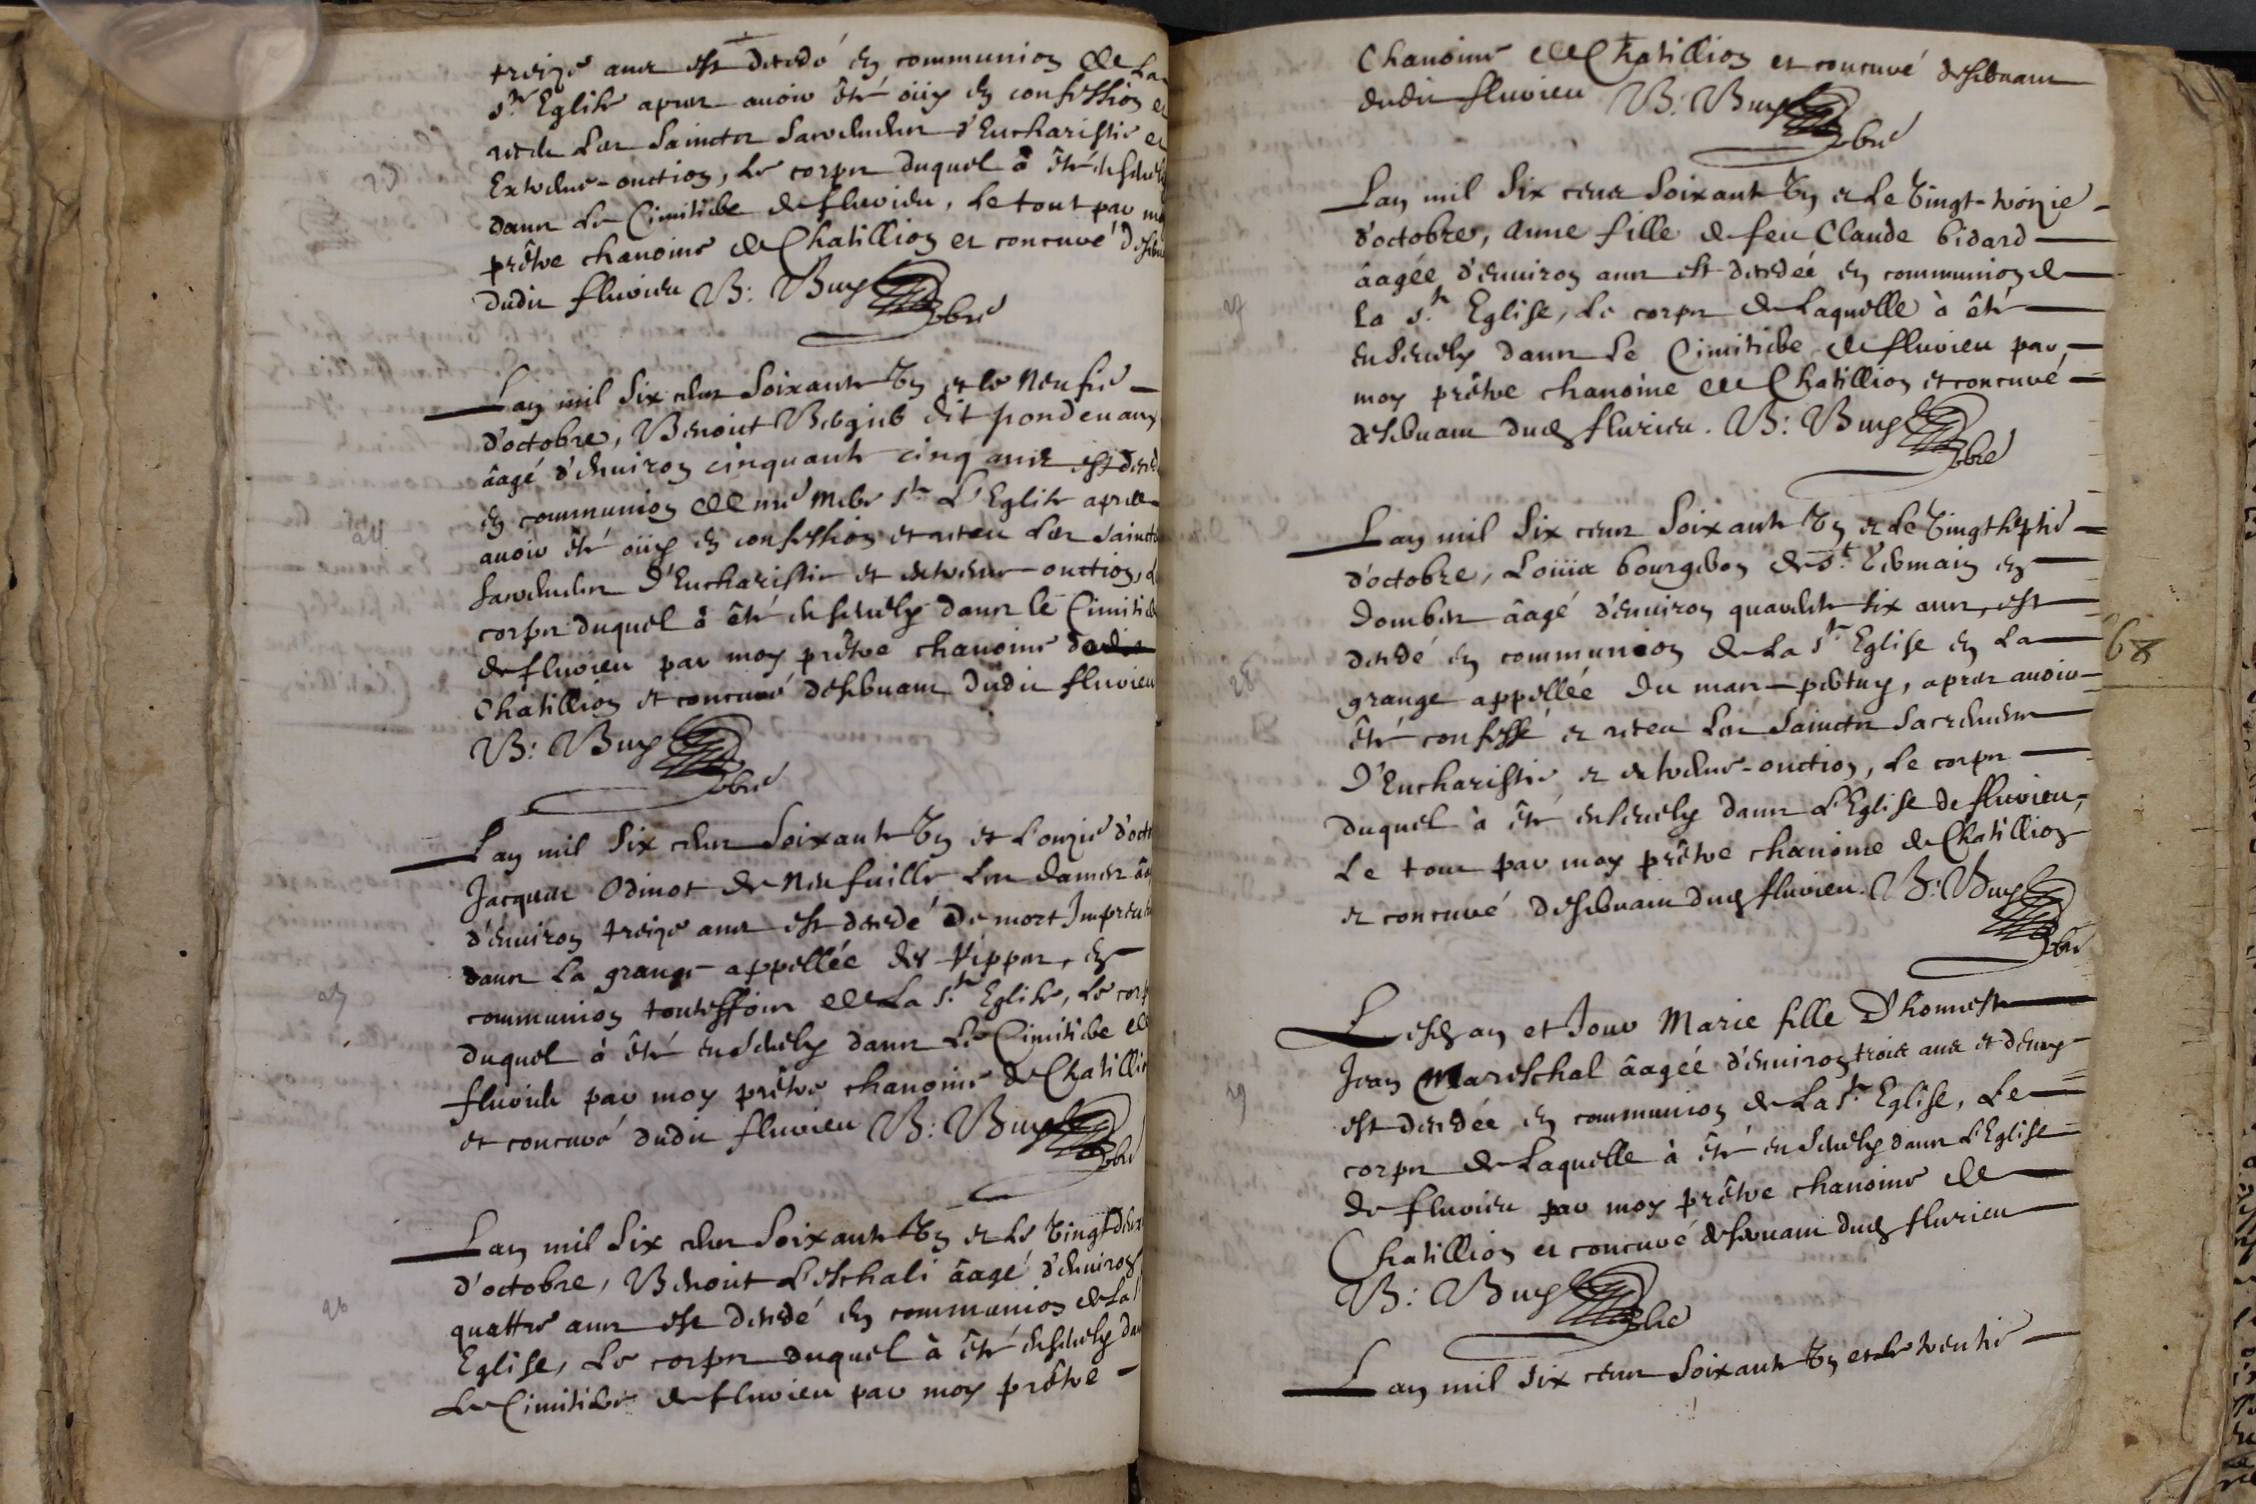 treize ans est decedé en communion de La
Ste Eglise apres avoir êté oüiy en confession et
receu Les Saincts Sacrements d'Eucharistie et
Extreme-onction, Le corps duquel à êté ensevely
dans Le Cimitiere de fluvieu, Le tout par moy
prêtre chanoine de Chatillion et concuré desservant
dudit fluvieu B: Buy
pbre
Lan mil six cens soixante un et le neufie
d'octobre, Benoit Bergier dit pondevaux
âagé d'environ cinquante cinq ans est decedé
en communion de nre Mere ste L'Eglise apres
avoir êté oüiy en confession et receu Les saincts
sacrements D'Eucharistie et extreme-onction, Le
corps duquel à êté ensevely dans le Cimitiere
de fluvieu par moy prêtre chanoine
Chatillion et concuré desservant dudit fluvieu
B: Buy
pbre
Lan mil six cens soixante un et L'onzie d'octobre
Jacques Odinot de Neufville Les dames âagé
d'environ treize ans est decedé De mort Impreveue
dans La grange appellée des Vippes, en
communion touteffois de La ste Eglise, Le corps
duquel à êté ensevely dans Le Cimitiere de
fluvieu par moy prêtre chanoine de Chatillion
et concuré dudit fluvieu B: Buy
pbre
Lan mil six cens soixante un et Le vingtdeux
d'octobre, Benoit Leschali âagé d'environ
quattre ans est decedé en communion de La
Eglise, Le corps duquel à êté ensevely dans
Le Cimitiere de fluvieu par moy prêtre
26
Chanoine de Chatillion et concuré desservant
dudit fluvieu B: Buy
pbre
Lan mil six cens soixante un et Le vingt-troizie
d'octobre, Anne fille de feu Claude bidard
âagée d'environ ans est decedée en communion de
La ste Eglise, Le corps de Laquelle à êté
ensevely dans Le Cimitiere de fluvieu par
moy prêtre chanoine de Chatillion et concuré
desservant dud fluvieu. B: Buy
pbre
27
Lan mil six cens soixante un et Le vingtseptie
d'octobre, Loüis bourgeon de St Germain en
Dombes âagé d'environ quarente six ans, est
decedé en communion de La ste Eglise en La
grange appellée Du mas-pertuy, apres avoir
êté confessé et receu Les Saincts Sacrements
D'Eucharistie et extreme-onction, Le corps
duquel à êté ensevely dans L'Eglise de fluvieu,
Le tout par moy prêtre chanoine de Chatillion
et concuré desservant dud fluvieu. B: Buy
pbre
28
68
Lesd an et Jour Marie fille D'honneste
Jean Mareschal âagée d'environ trois ans et demy
est decedée en communion de La ste Eglise, Le
corps de Laquelle à êté ensevely dans L'Eglise
de fluvieu par moy prêtre chanoine de
Chatillion et concuré desservant dud fluvieu
B: Buy
pbre
29
Lan mil six cens soixante un et le trentie